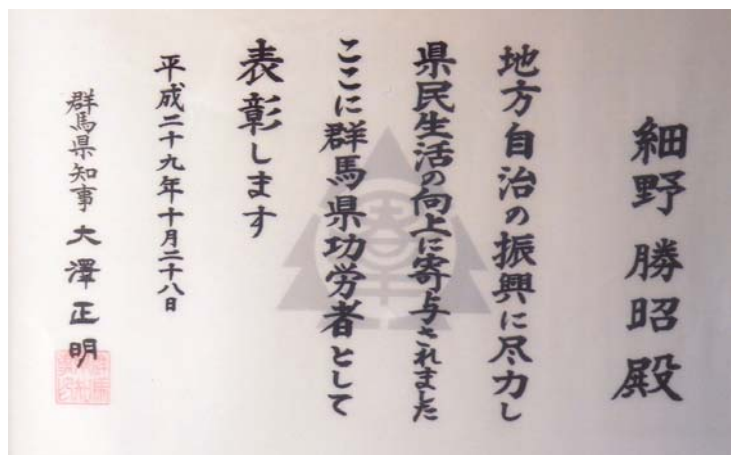 細野 勝昭 殿
地方自治の振興に尽力し
県民生活の向上に寄与されました
ここに群馬県功労者として
表彰します
平成二十九年十月二十八日
群馬県知事 大澤正明